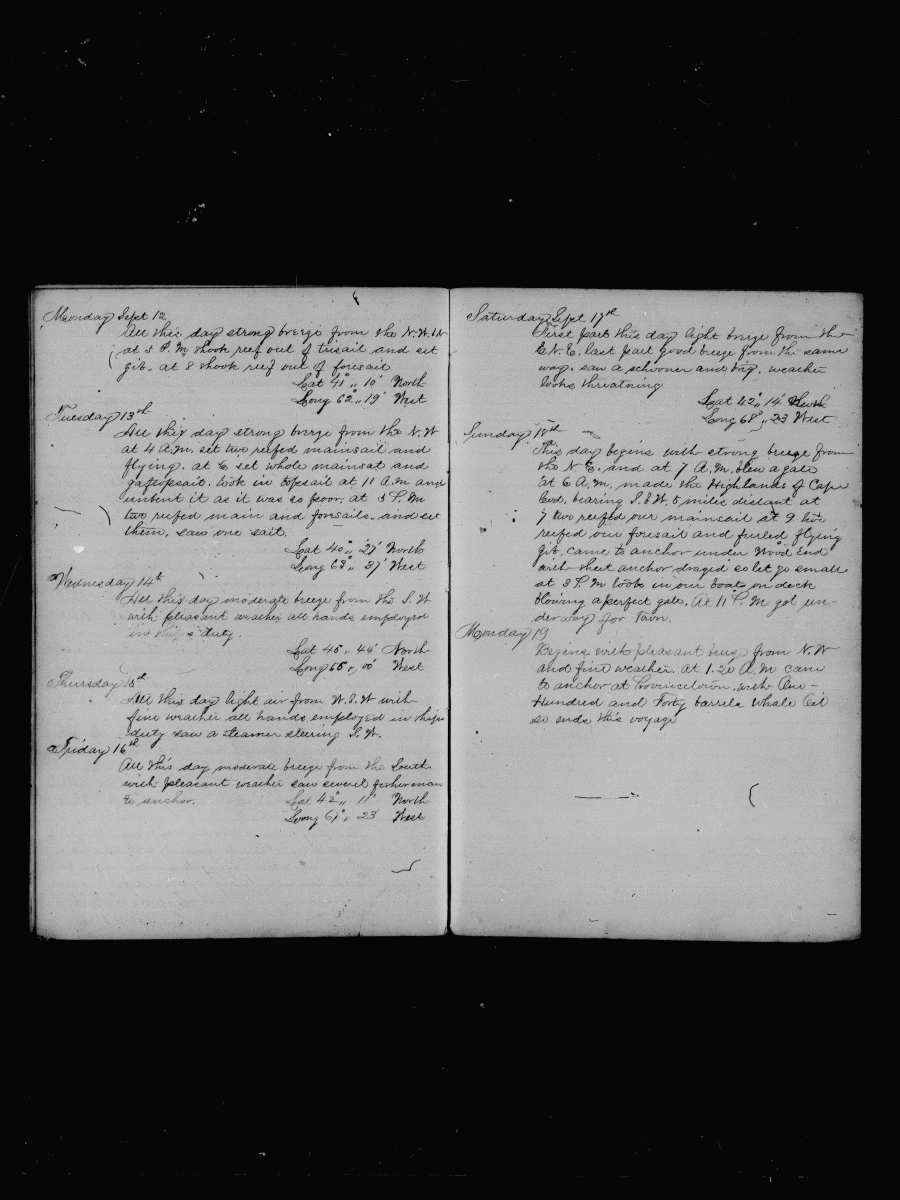 Monday Sept 12
All this day strong breeze from the N.W.
at 5 P.M. shook reef out of trisail and set
gib. at 8 shook reef out of foresail
Lat 41° 10' North
Long 62° 19' West
Tuesday 13th
All this day strong breeze from the N.W
at 4 A.M. set two reefed mainsail and
flying. at 6 set whole mainsail and
gafftopsail. took in topsail at 11 A.M and
unbent it as it was so poor. at 5 P.M
two reefed main and foresails. and set
them, saw one sail.
Lat 40° 27' North
Long 63° 37' West
Wednesday 14th
All this day moderate breeze from the S.W
with pleasant weather all hands employed
in ships duty.
Lat 40° 44' North
Long 65° 00' West
Thursday 15th
All this day light air from W.S.W with
fine weather all hands employed in ships
duty saw a steamer steering S.W.
Friday 16th
All this day moderate breeze from the South
with pleasant weather saw severl fisherman
to anchor. Lat 42° 11' North
Long 67° 23' West
Saturday Sept 17th
First part this day light breeze from the
E.N.E. last part good breeze from the same
way. saw a schooner and brig. weather
looks threatning
Lat 42° 14' North
Long 68° 23 West
Sunday 18th
This day begins with strong breeze from
the N.E. and at 7 A.M. blew a gale
at 6 A.M. made the Highlands of Cape
Cod. bearing S.S.W. 5 miles distant at
7 two reefed our mainsail at 9 two
reefed our foresail and furled flying
gib. came to anchor under Wood End
with sheet anchor draged so let go small
at 3 P.M took in our boats on deck
blowing a perfect gale. At 11 P.M got un-
derway for Town.
Monday 19
Begins with pleasant breeze from N.W
and fine weather. at 1.20 A.M came
to anchor at Provincetown. with One-
Hundred and Forty barrels Whale Oil
so ends this voyage